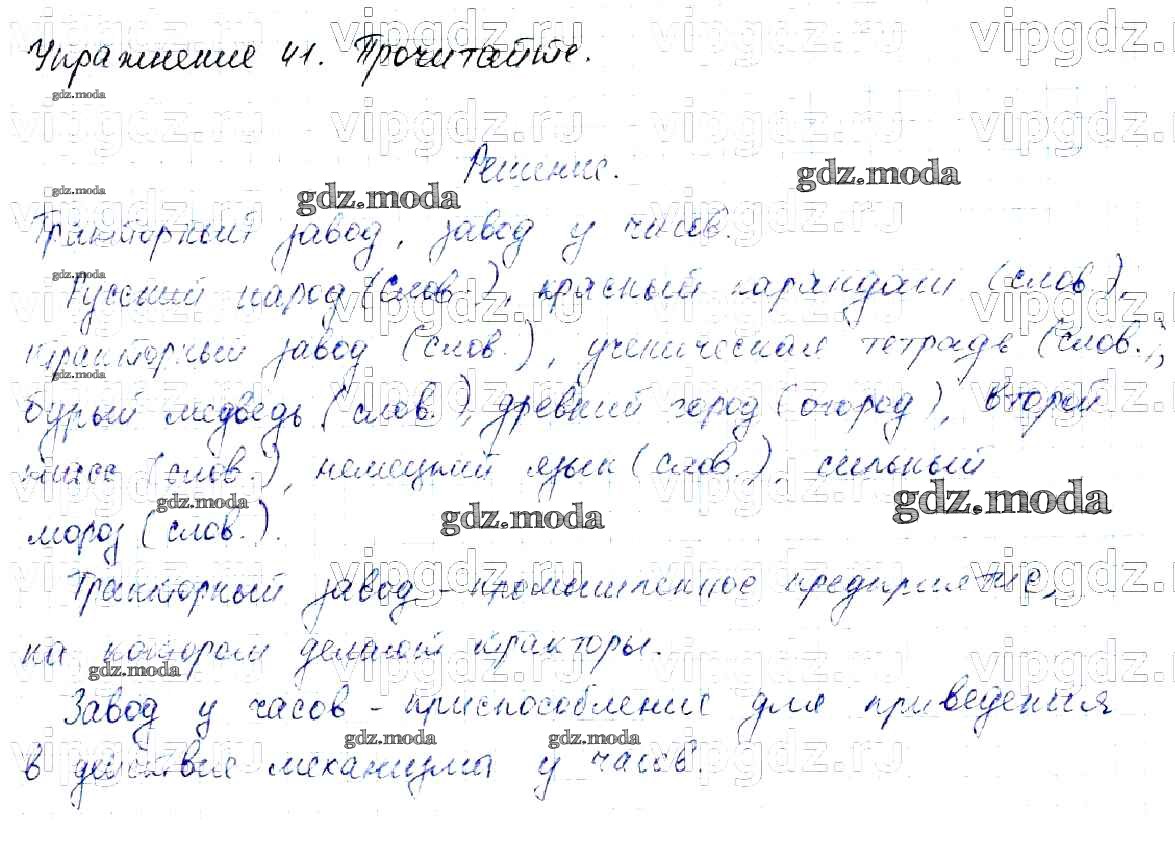 Упражнение 41. Прочитайте.
Решение.
Тракторный завод, завод у часов.
Русский народ (слов.), красный карандаш (слов.),
тракторный завод (слов.), ученическая тетрадь (слов.),
бурый медведь (слов.), древний город (огород), второй
класс (слов.), немецкий язык (слов.), сильный
мороз (слов.).
Тракторный завод - промышленное предприятие,
на котором делают тракторы.
Завод у часов - приспособление для приведения
в действие механизмы у часов.
gdz.moda
vipgdz.ru